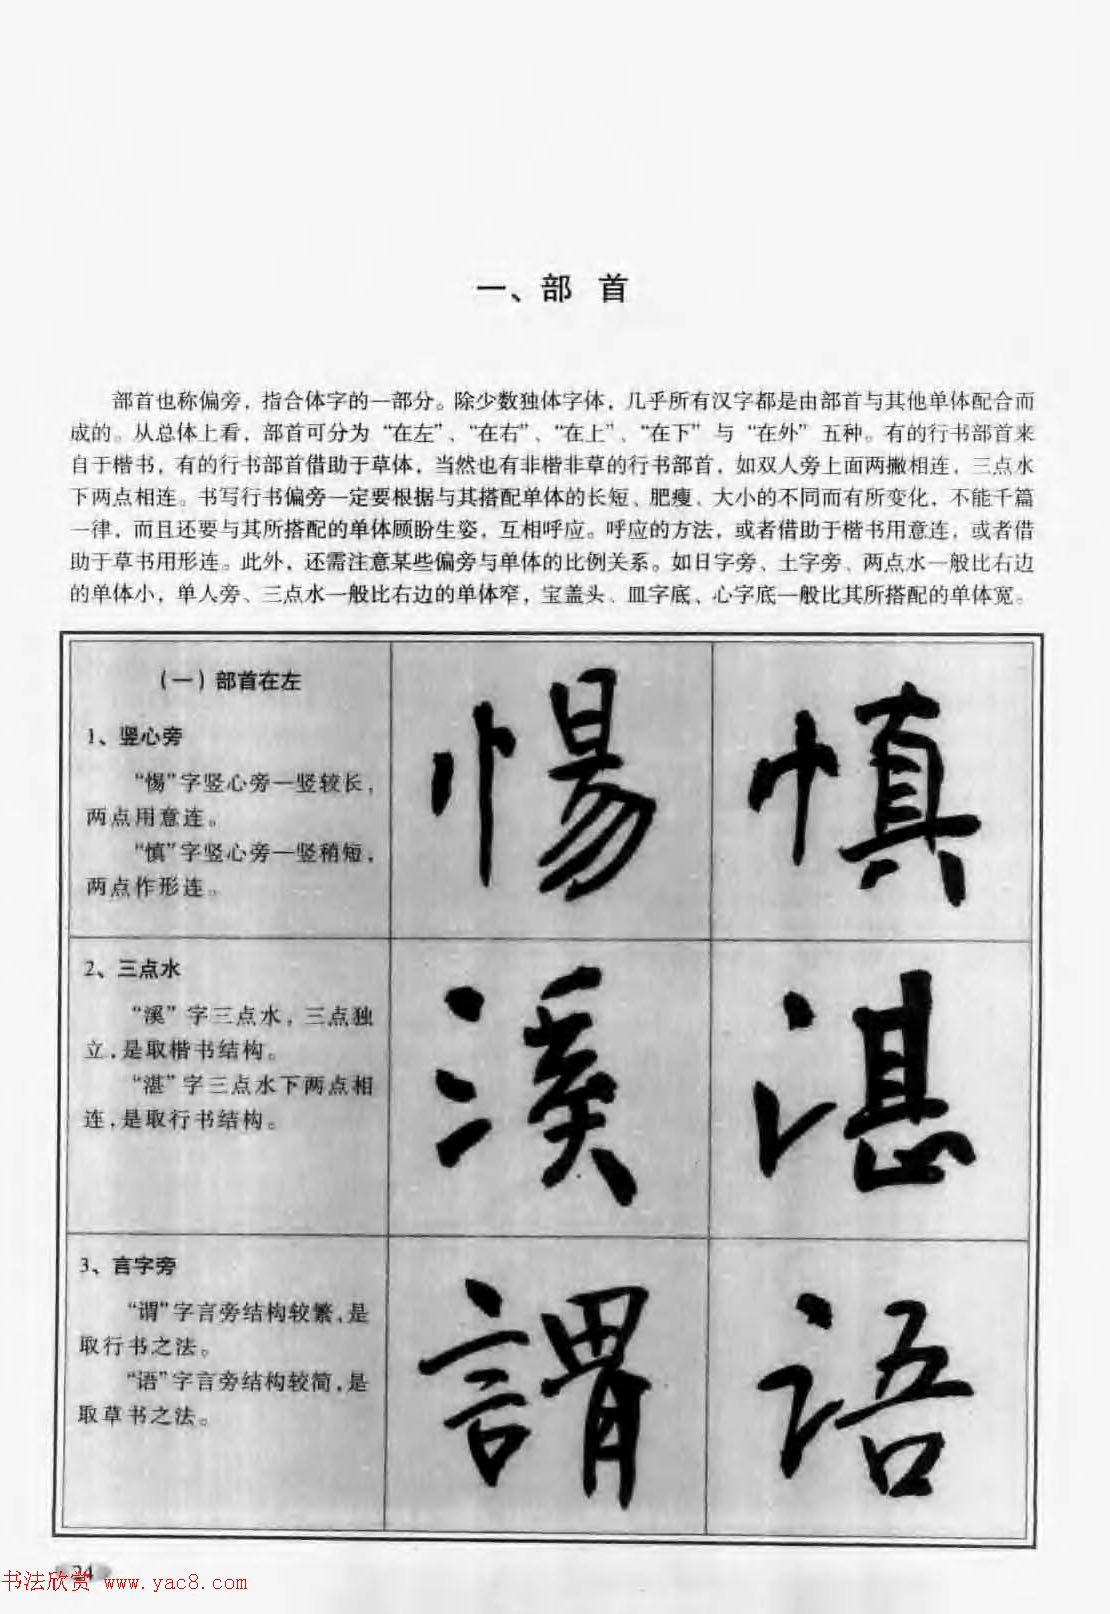 一、部 首
部首也称偏旁，指合体字的一部分。除少数独体字体，几乎所有汉字都是由部首与其他单体配合而
成的。从总体上看，部首可分为“在左”、“在右”、“在上”、“在下”与“在外”五种。有的行书部首来
自于楷书，有的行书部首借助于草体，当然也有非楷非草的行书部首，如双人旁上面两撇相连，三点水
下两点相连。书写行书偏旁一定要根据与其搭配单体的长短、肥瘦、大小的不同而有所变化，不能千篇
一律，而且还要与其所搭配的单体顾盼生姿，互相呼应。呼应的方法，或者借助于楷书用意连，或者借
助于草书用形连。此外，还需注意某些偏旁与单体的比例关系。如日字旁、土字旁、两点水一般比右边
的单体小，单人旁、三点水一般比右边的单体窄，宝盖头、皿字底、心字底一般比其所搭配的单体宽。
（一）部首在左
1、竖心旁
“惕”字竖心旁一竖较长，
两点用意连。
“慎”字竖心旁一竖稍短，
两点作形连。
惕 慎
2、三点水
“溪”字三点水，三点独
立，是取楷书结构。
“湛”字三点水下两点相
连，是取行书结构。
溪 湛
3、言字旁
“谓”字言旁结构较繁，是
取行书之法。
“语”字言旁结构较简，是
取草书之法。
謂 语
24
书法欣赏 www.yac8.com